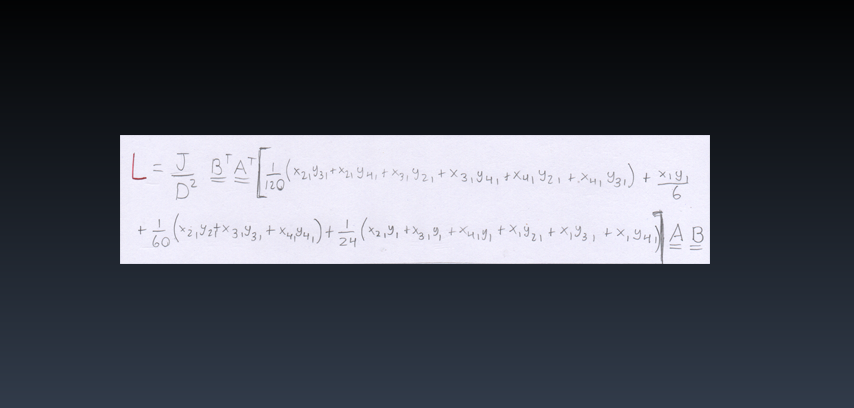 L = J/D² B̲̲ᵀ A̲̲ᵀ [ 1/120 (x₂₁y₃₁ + x₂₁y₄₁ + x₃₁y₂₁ + x₃₁y₄₁ + x₄₁y₂₁ + x₄₁y₃₁) + x₁y₁/6
+ 1/60 (x₂₁y₂₁ + x₃₁y₃₁ + x₄₁y₄₁) + 1/24 (x₂₁y₁ + x₃₁y₁ + x₄₁y₁ + x₁y₂₁ + x₁y₃₁ + x₁y₄₁) ] A̲̲ B̲̲